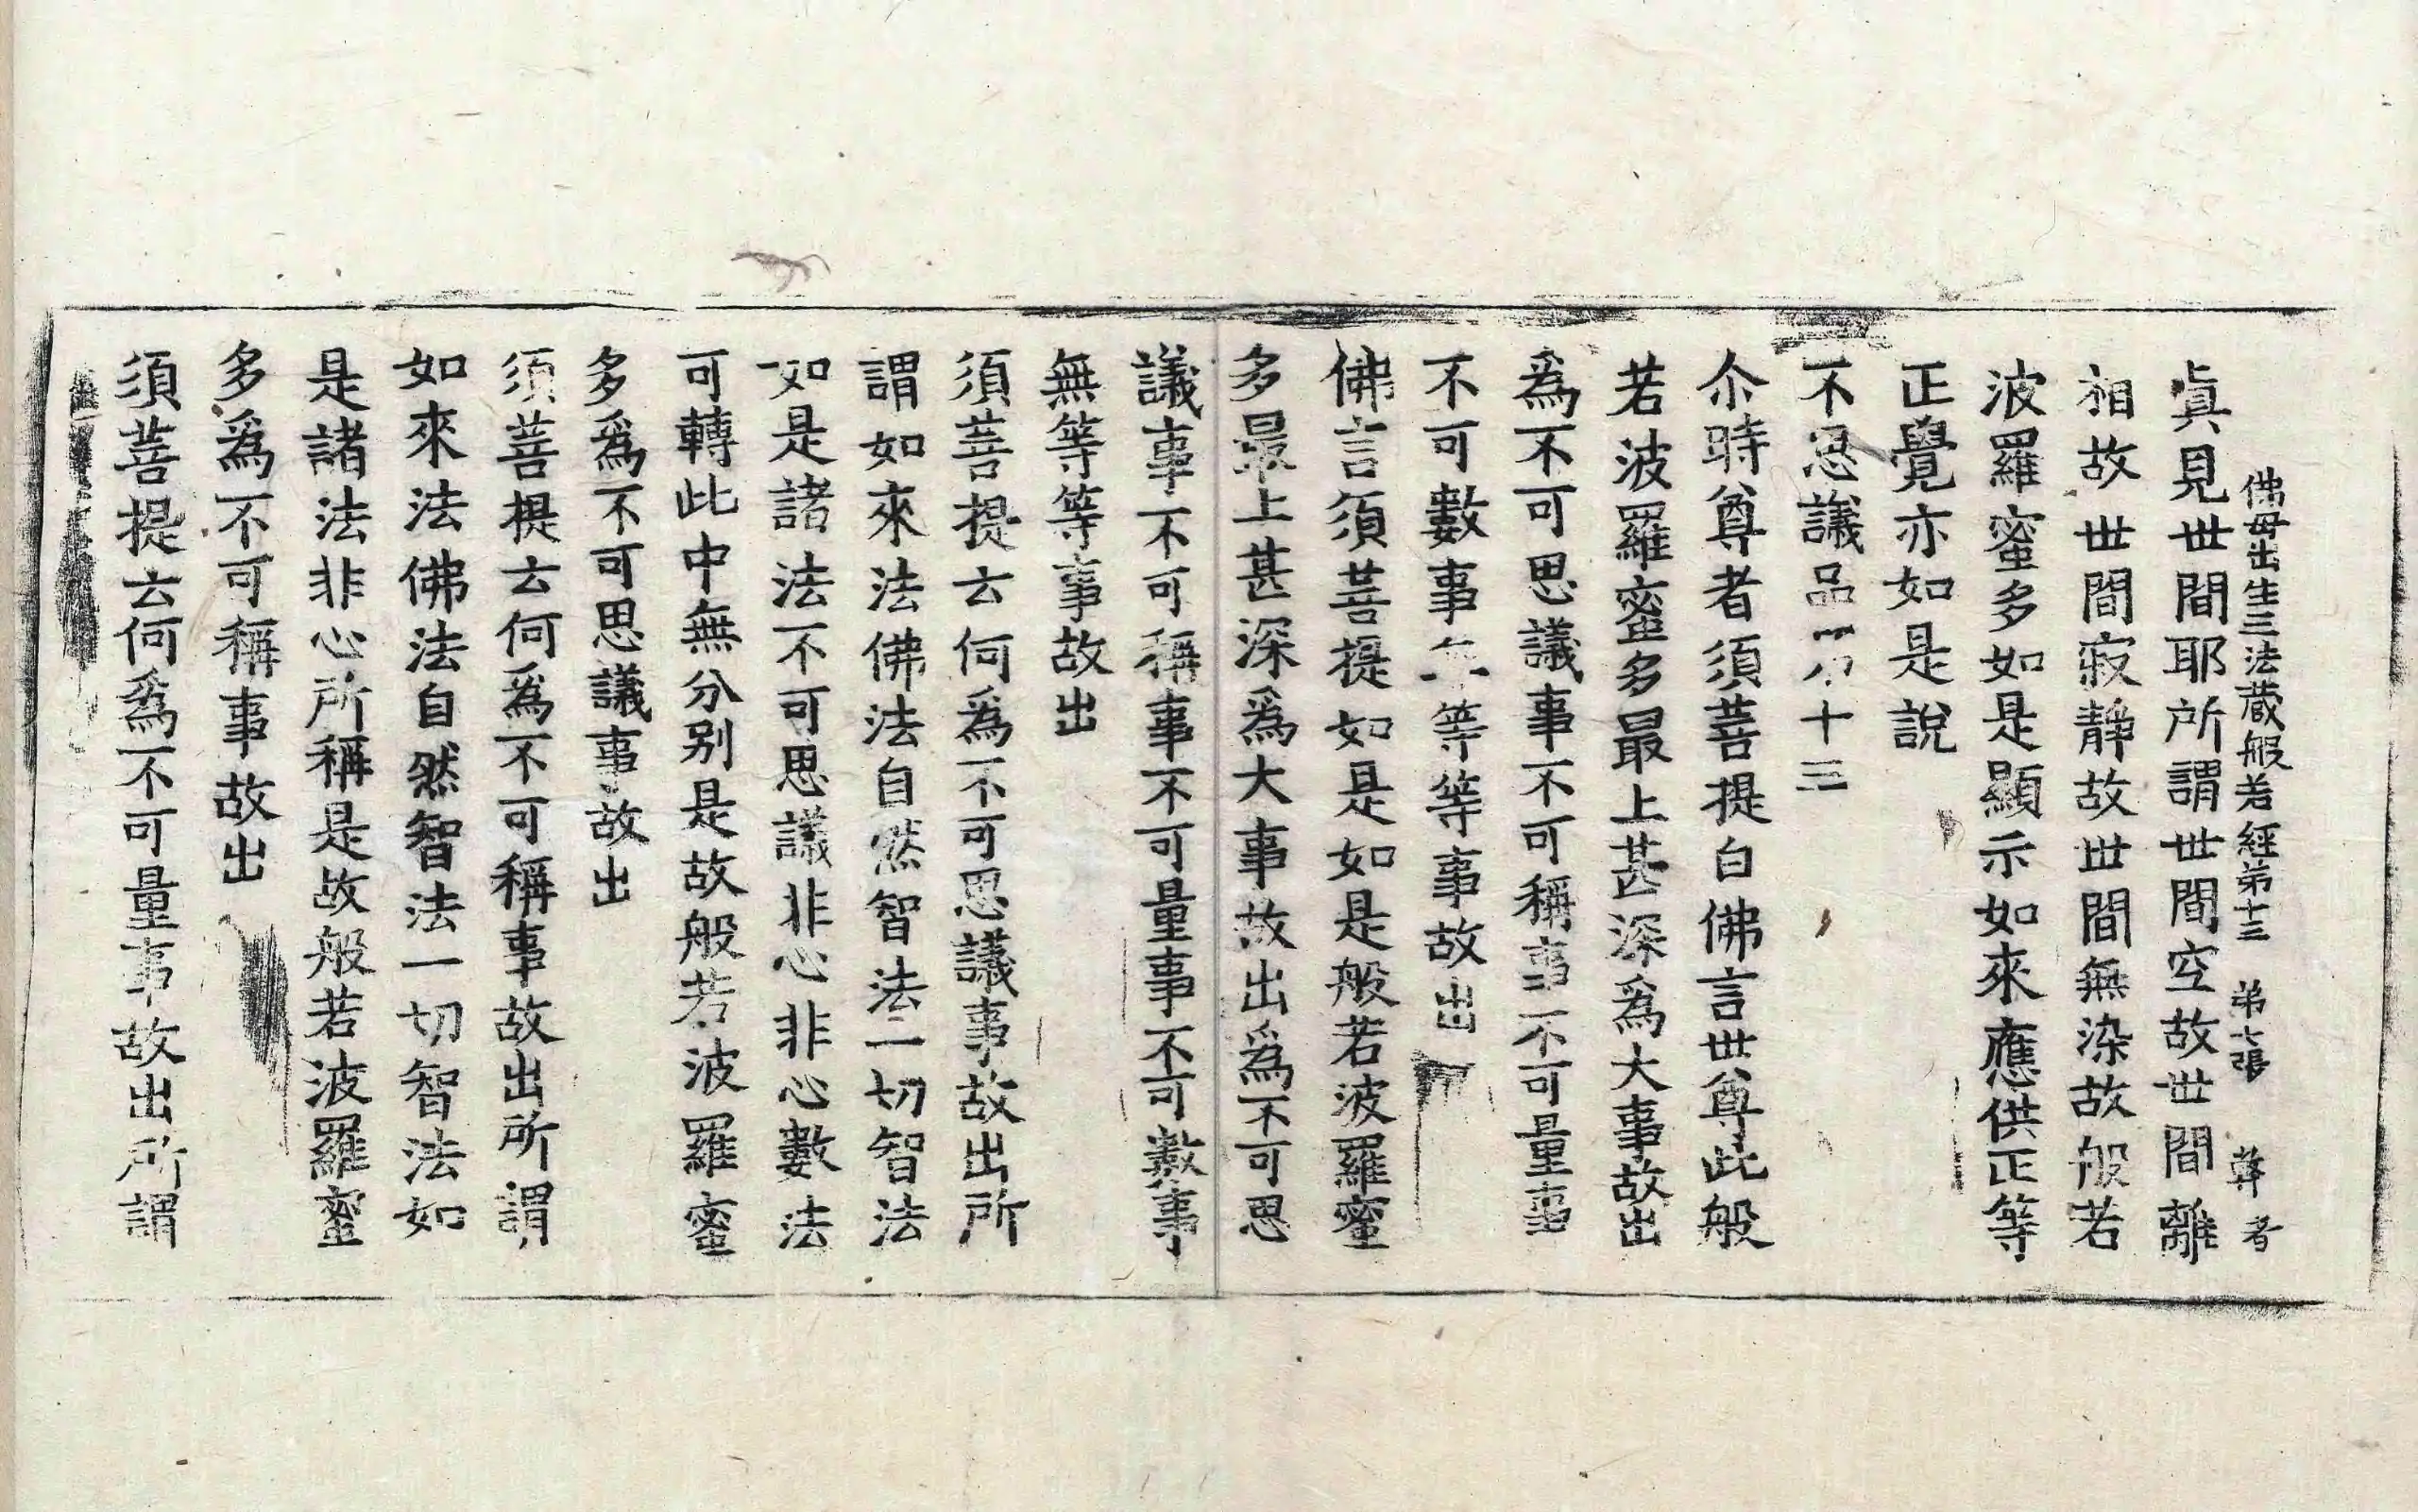 佛母出生三法蔵般若經苐十三 苐七張 尊者
眞見世間耶所謂世間空故世間離
相故世間寂靜故世間無染故般若
波羅蜜多如是顯示如來應供正等
正覺亦如是說
不思議品十三
尒時尊者須菩提白佛言世尊此般
若波羅蜜多最上甚深爲大事故出
爲不可思議事不可稱事不可量事
不可數事無等等事故出
佛言須菩提如是如是般若波羅蜜
多最上甚深爲大事故出爲不可思
議事不可稱事不可量事不可數事
無等等事故出
須菩提云何爲不可思議事故出所
謂如來法佛法自然智法一切智法
如是諸法不可思議非心非心數法
可轉此中無分別是故般若波羅蜜
多爲不可思議事故出
須菩提云何爲不可稱事故出所謂
如來法佛法自然智法一切智法如
是諸法非心所稱是故般若波羅蜜
多爲不可稱事故出
須菩提云何爲不可量事故出所謂